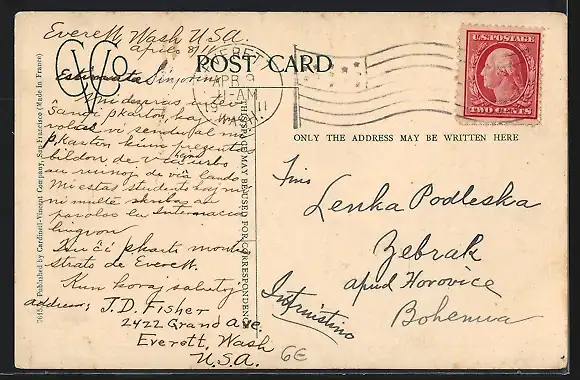 Everett Wash U.S.A.
April 8/11
Estimata Sinjorino
Mi deziras
ŝanĝi p. kartoj, kaj
volas vi sendu al mi
p. karton kun prezentas
bildon de via urbo
au ruinoj de via lando
Mi estas studento kaj mi
ni multe skribas au
parolas la Internacia
lingvon.
Tiu ĉi p. karto montr
strato de Everett.
Kun koraj salutoj
address; J.D. Fisher
2422 Grand Ave.
Everett, Wash
U.S.A.
6E
7615 Published by Cardinell-Vincent Company, San Francisco (Made in France)
POST CARD
THIS SPACE MAY BE USED FOR CORRESPONDENCE
ONLY THE ADDRESS MAY BE WRITTEN HERE
EVERETT
APR 9
1-AM
1911
WASH.
U.S. POSTAGE
TWO CENTS
Lenka Podleska
Zebrak
apud Horovice
Bohemia
Instruistino